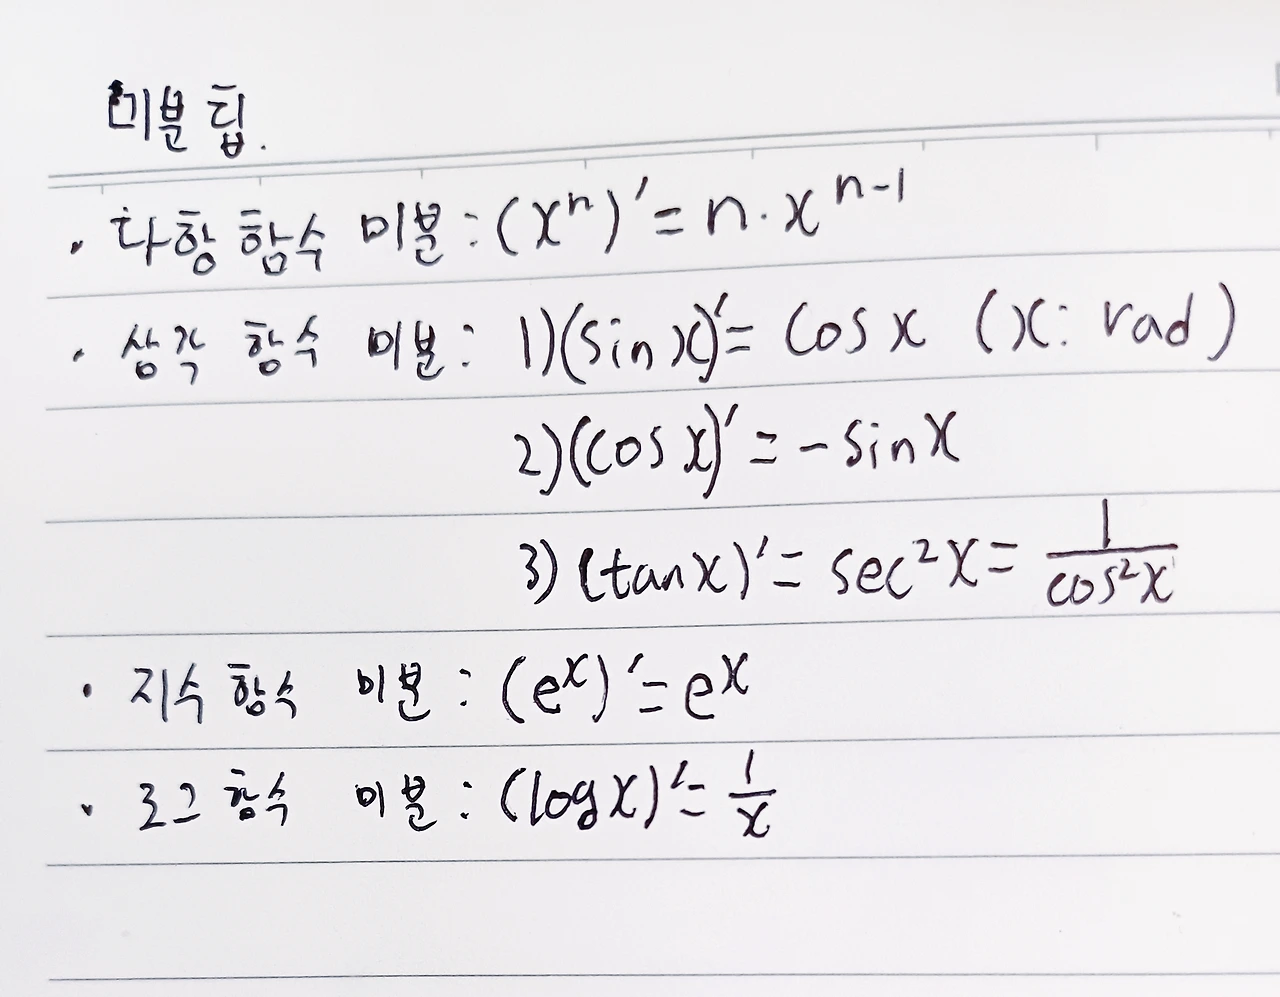 미분 팁.
· 다항 함수 미분 : (xⁿ)′ = n · xⁿ⁻¹
· 삼각 함수 미분 : 1) (sin x)′ = cos x (x : rad)
2) (cos x)′ = - sin x
3) (tan x)′ = sec²x = 1/cos²x
· 지수 함수 미분 : (eˣ)′ = eˣ
· 로그 함수 미분 : (log x)′ = 1/x